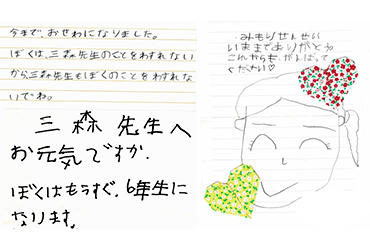 今まで、おせわになりました。
ぼくは、三森先生のことをわすれない
から三森先生もぼくのことをわすれな
いでね。
三森先生へ
お元気ですか.
ぼくはもうすぐ、6年生に
なります。
みもりせんせい
いままでありがとう
これからも、がんばって
ください♡